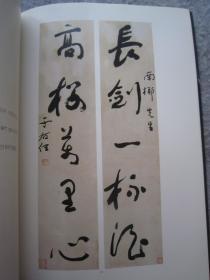 長劍一杯酒
南鄉先生
高樓萬里心
于右任